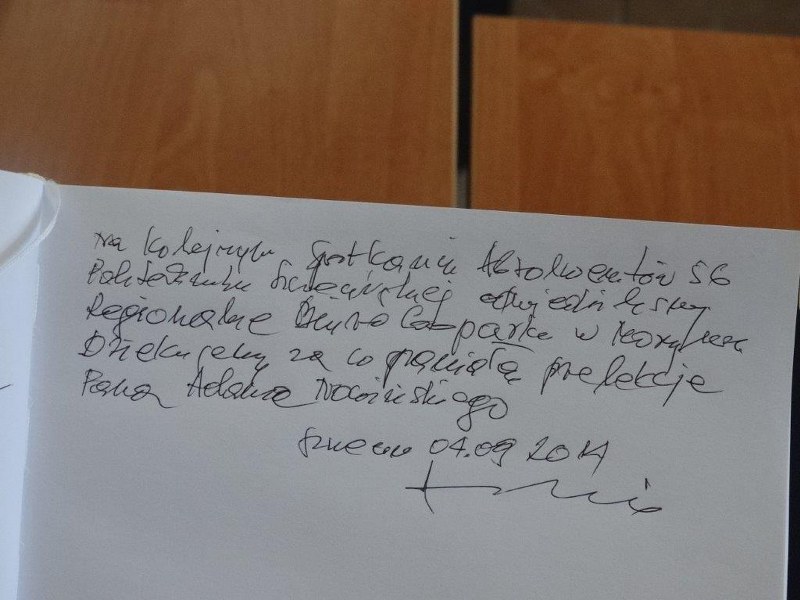 na kolejnym spotkaniu Absolwentów 56
Politechniki Szczecińskiej odwiedziliśmy
Regionalne Biuro Geoparku w Moryniu
Dziękujemy za wspaniałą prelekcję
Pana Adama
Szczecin 04.09 2014